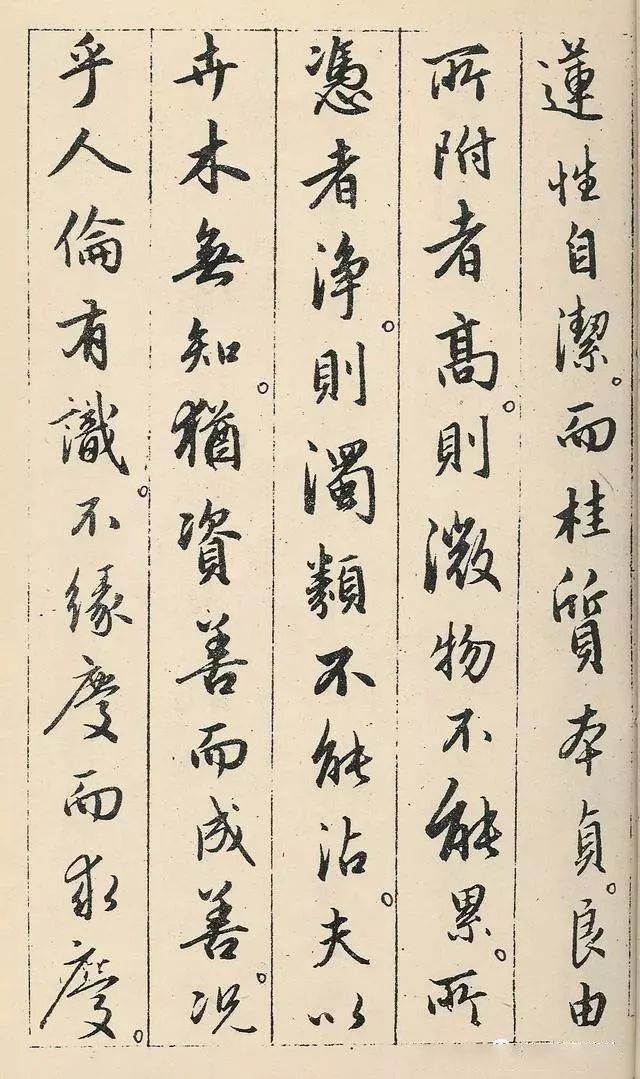 蓮性自潔。而桂質本貞。良由
所附者高。則微物不能累。所
憑者淨。則濁類不能沾。夫以
卉木無知。猶資善而成善。况
乎人倫有識。不緣慶而求慶。